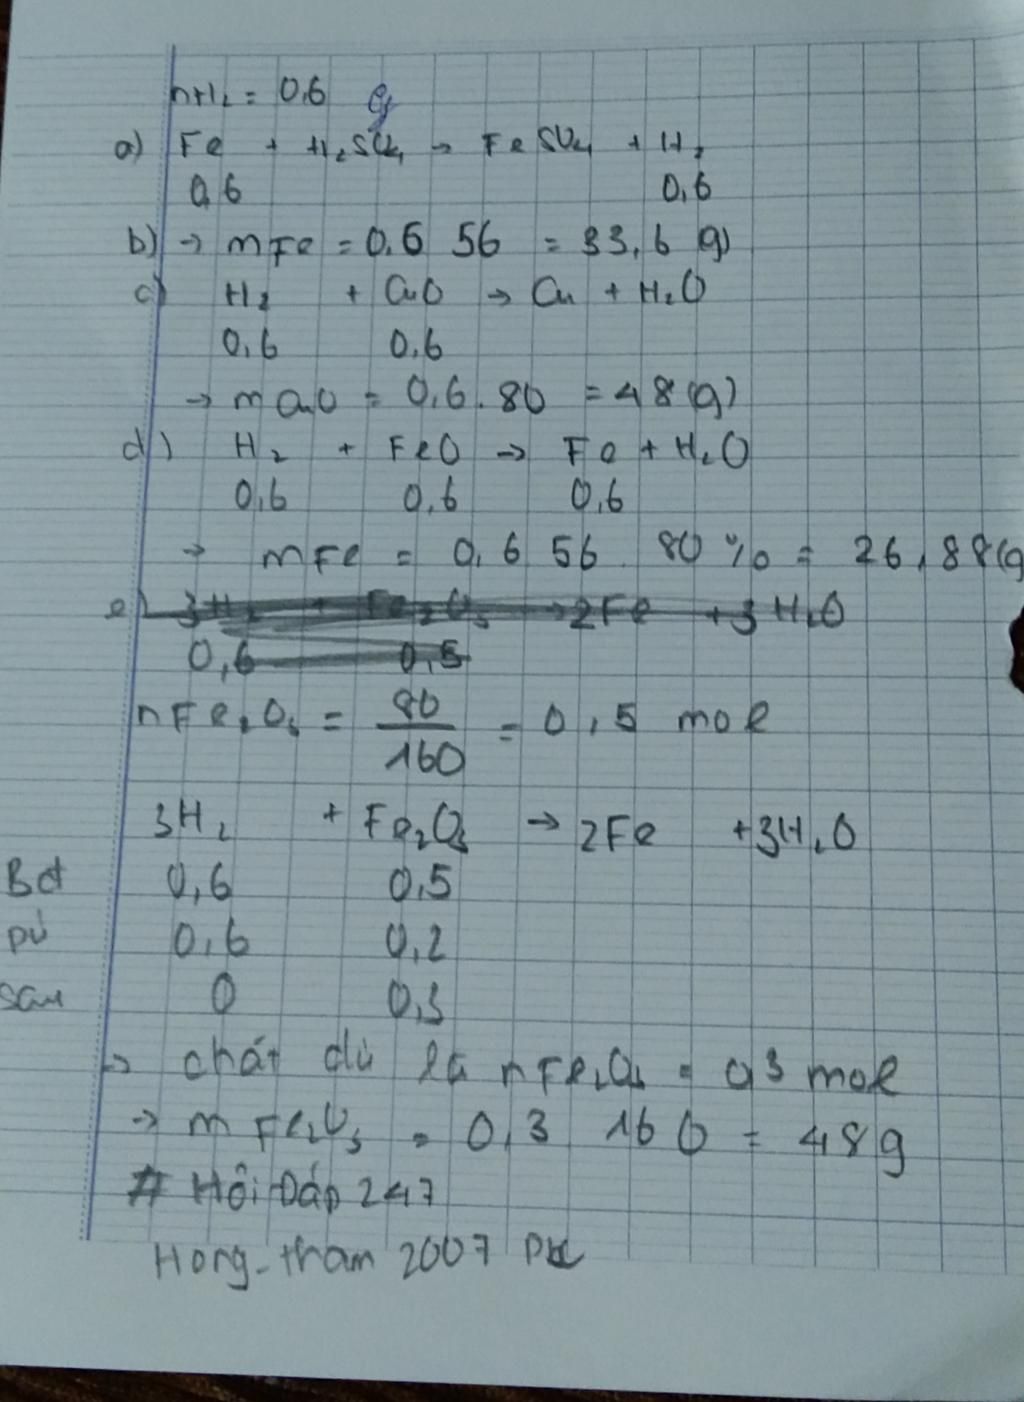 nH₂ = 0,6
a) Fe + H₂SO₄ → FeSO₄ + H₂
0,6 0,6
b) → mFe = 0,6 56 = 33,6 (g)
c) H₂ + CuO → Cu + H₂O
0,6 0,6
→ mCuO = 0,6.80 = 48(g)
d) H₂ + FeO → Fe + H₂O
0,6 0,6 0,6
→ mFe = 0,6 56 . 80% = 26,88(g
e) 3H₂ + Fe₂O₃ → 2Fe + 3H₂O
0,6 0,5
nFe₂O₃ = 80/160 = 0,5 mol
3H₂ + Fe₂O₃ → 2Fe + 3H₂O
Bđ 0,6 0,5
pứ 0,6 0,2
sau 0 0,3
→ chất dư là nFe₂O₃ = 0,3 mol
→ mFe₂O₃ = 0,3 160 = 48g
# Hỏi Đáp 247
Hong_tham 2007